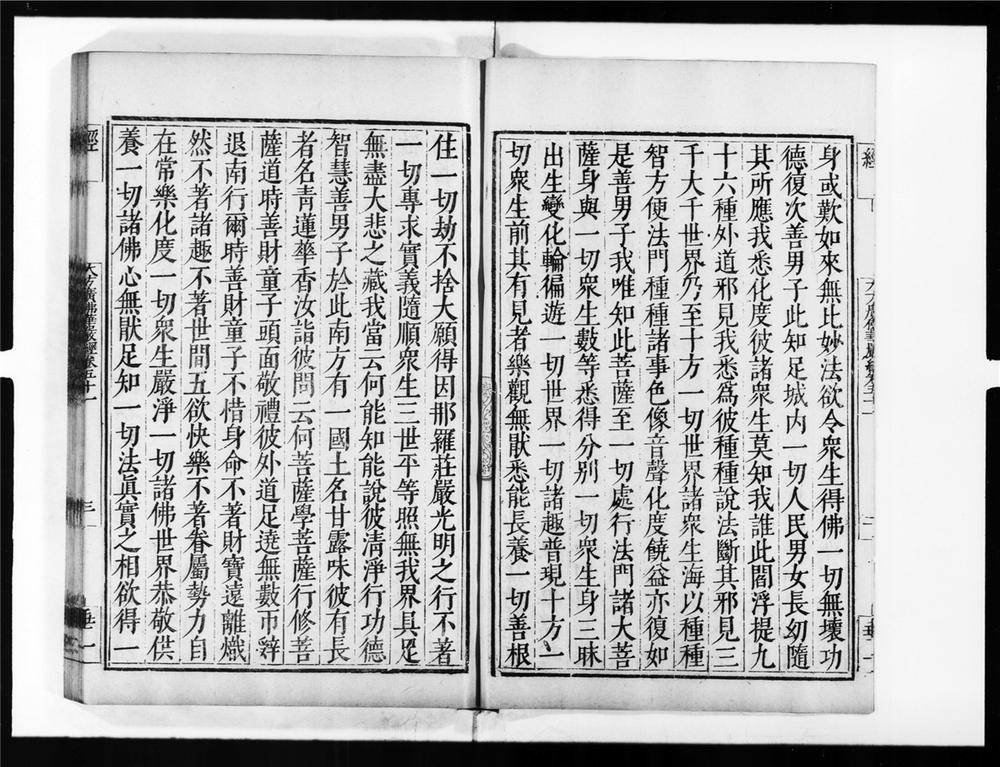 身或歎如來無比妙法欲令衆生得佛一切無壞功
德復次善男子此知足城内一切人民男女長幼隨
其所應我悉化度彼諸衆生莫知我誰此閻浮提九
十六種外道邪見我悉爲彼種種說法斷其邪見三
千大千世界乃至十方一切世界諸衆生海以種種
智方便法門種種諸事色像音聲化度饒益亦復如
是善男子我唯知此菩薩至一切處行法門諸大菩
薩身與一切衆生數等悉得分别一切衆生身三昧
出生變化輪徧遊一切世界一切諸趣普現十方一
切衆生前其有見者樂觀無猒悉能長養一切善根
住一切劫不捨大願得因那羅莊嚴光明之行不著
一切專求實義隨順衆生三世平等照無我界具足
無盡大悲之藏我當云何能知能說彼清淨行功德
智慧善男子於此南方有一國土名甘露味彼有長
者名青蓮華香汝詣彼問云何菩薩學菩薩行修菩
薩道時善財童子頭面敬禮彼外道足遶無數帀辭
退南行爾時善財童子不惜身命不著財寶遠離熾
然不著諸趣不著世間五欲快樂不著眷屬勢力自
在常樂化度一切衆生嚴淨一切諸佛世界恭敬供
養一切諸佛心無猒足知一切法眞實之相欲得一
經
大方廣佛華嚴經卷五十一
三
垂一